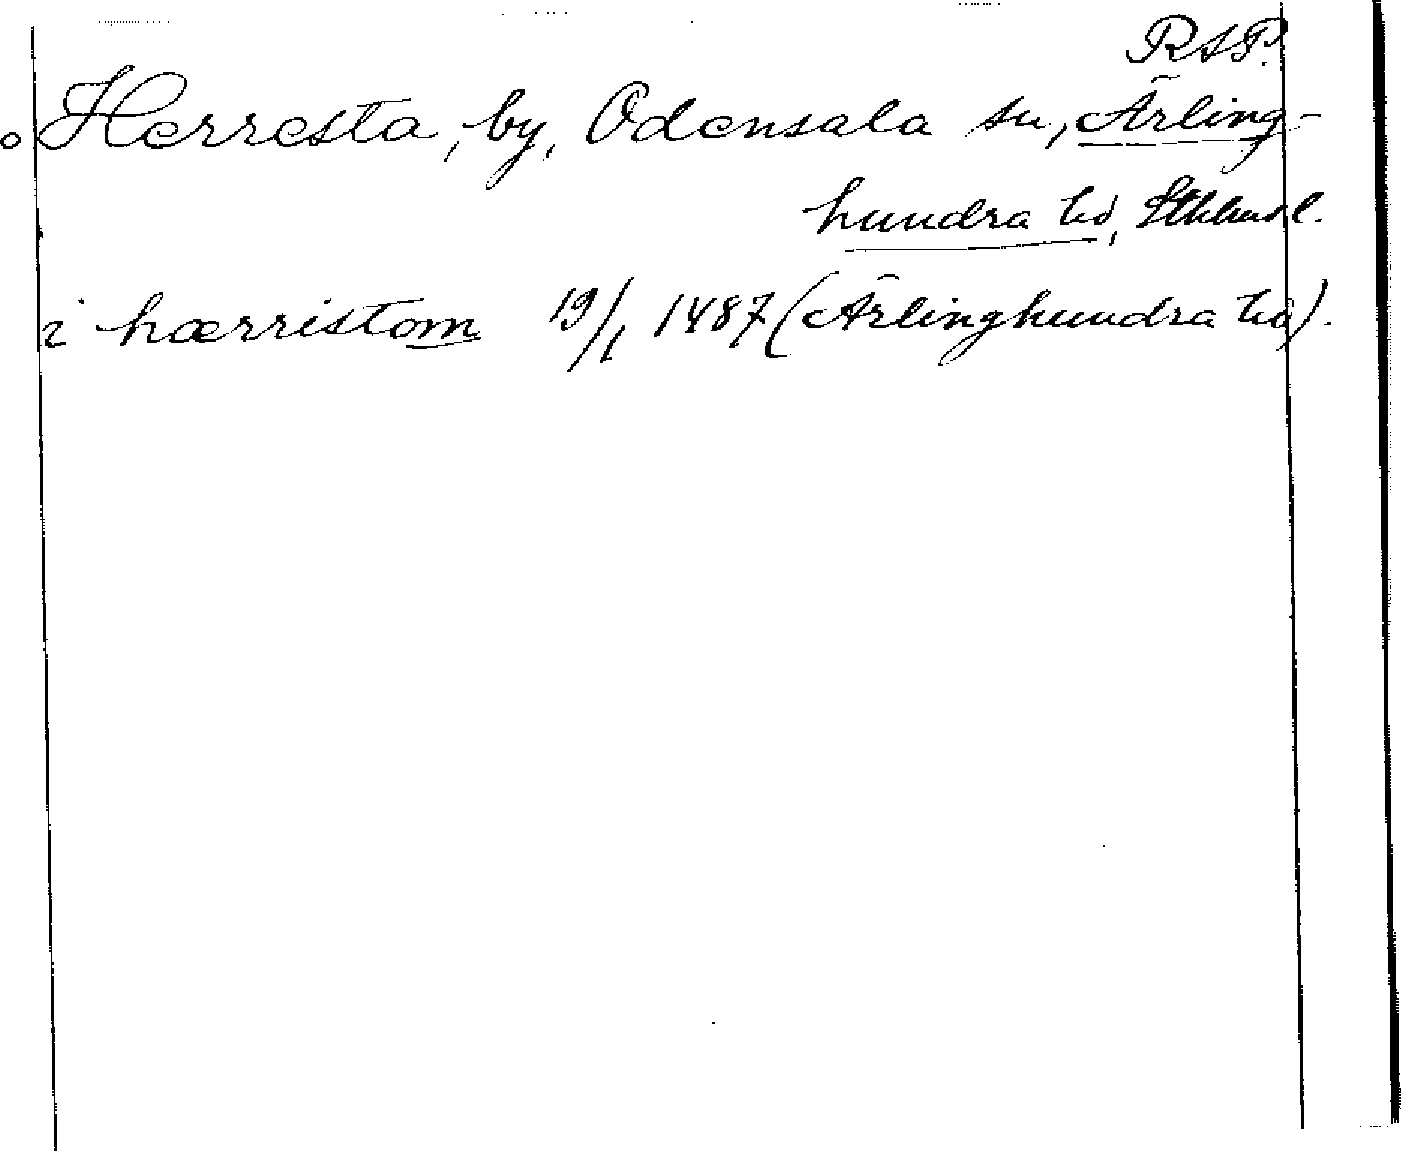 RAP.
Herresta, by, Odensala sn, Ärling-
hundra hd, Sthlms l.
i hærristom 19/1 1487 (Ärlinghundra hd).